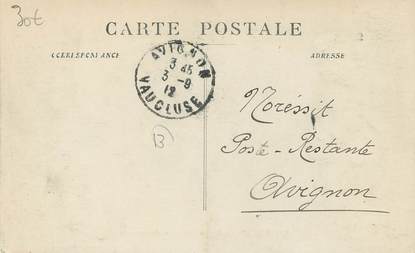 30€
CARTE POSTALE
CORRESPONDANCE
ADRESSE
AVIGNON
3 45
3 -9
12
VAUCLUSE
B
Noréssit
Poste-Restante
Avignon